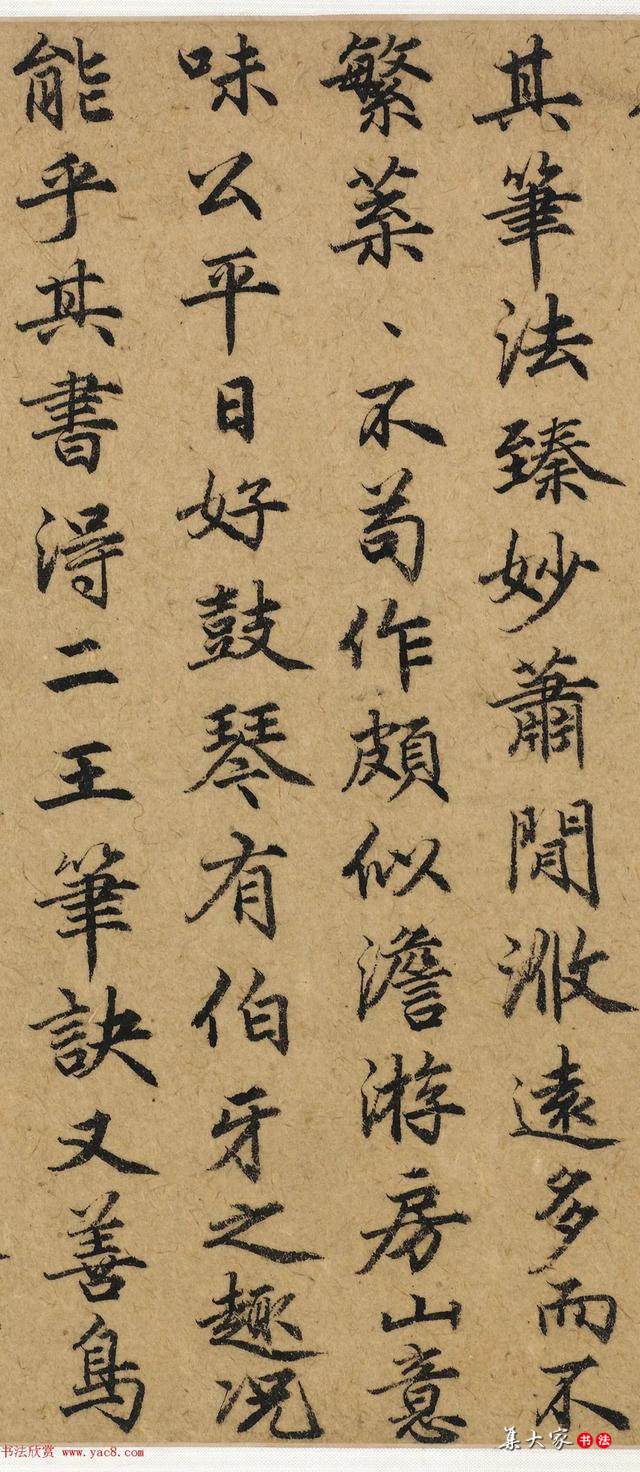 其筆法臻妙蕭閒遠多而不
繁葉、不苟作頗似澹游房山意
味公平日好鼓琴有伯牙之趣况
能乎其書淂二王筆訣又善鳥
书法欣赏 www.yac8.com
集大家 书法